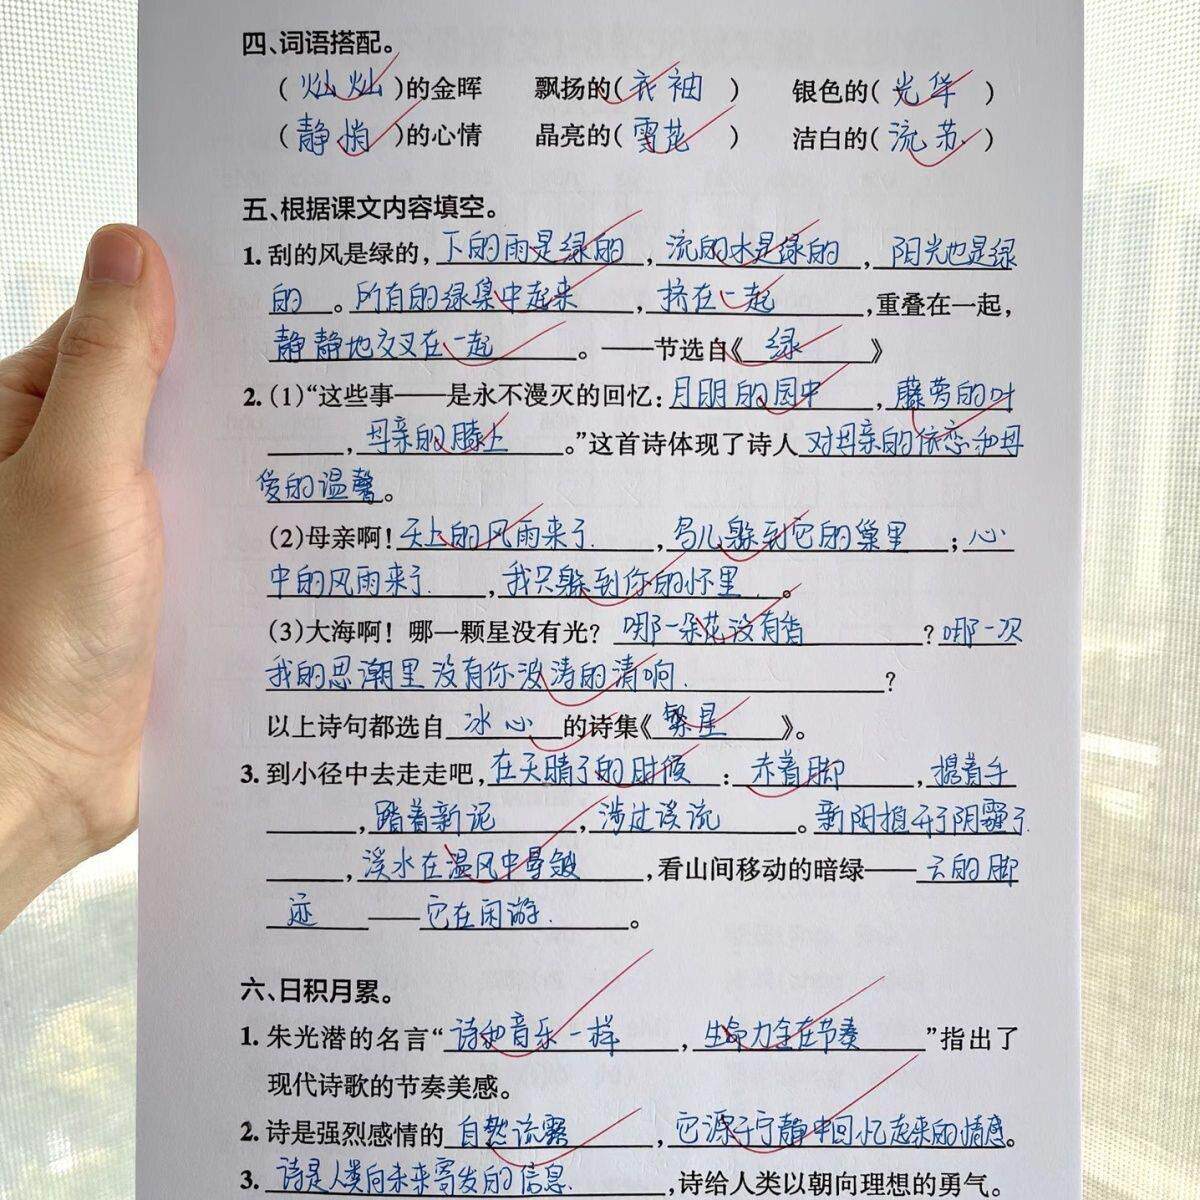 四、词语搭配。
(灿灿)的金晖 飘扬的(衣袖) 银色的(光华)
(静悄)的心情 晶亮的(雪花) 洁白的(流苏)
五、根据课文内容填空。
1. 刮的风是绿的,下的雨是绿的,流的水是绿的,阳光也是绿
的。所有的绿集中起来,挤在一起,重叠在一起,
静静地交叉在一起。——节选自《绿》
2. (1)“这些事——是永不漫灭的回忆:月明的园中,藤萝的叶
,母亲的膝上。”这首诗体现了诗人对母亲的依恋和母
爱的温馨。
(2)母亲啊!天上的风雨来了,鸟儿躲到它的巢里;心
中的风雨来了,我只躲到你的怀里。
(3)大海啊!哪一颗星没有光?哪一朵花没有香?哪一次
我的思潮里没有你波涛的清响?
以上诗句都选自冰心的诗集《繁星》。
3. 到小径中去走走吧,在天晴了的时候:赤着脚,携着手
,踏着新泥,涉过溪流。新阳推开了阴霾了
,溪水在温风中晕皱,看山间移动的暗绿——云的脚
迹——它在闲游。
六、日积月累。
1. 朱光潜的名言“诗和音乐一样,生命力全在节奏”指出了
现代诗歌的节奏美感。
2. 诗是强烈感情的自然流露,它源于宁静中回忆起来的情感。
3. 诗是人类向未来寄发的信息,诗给人类以朝向理想的勇气。